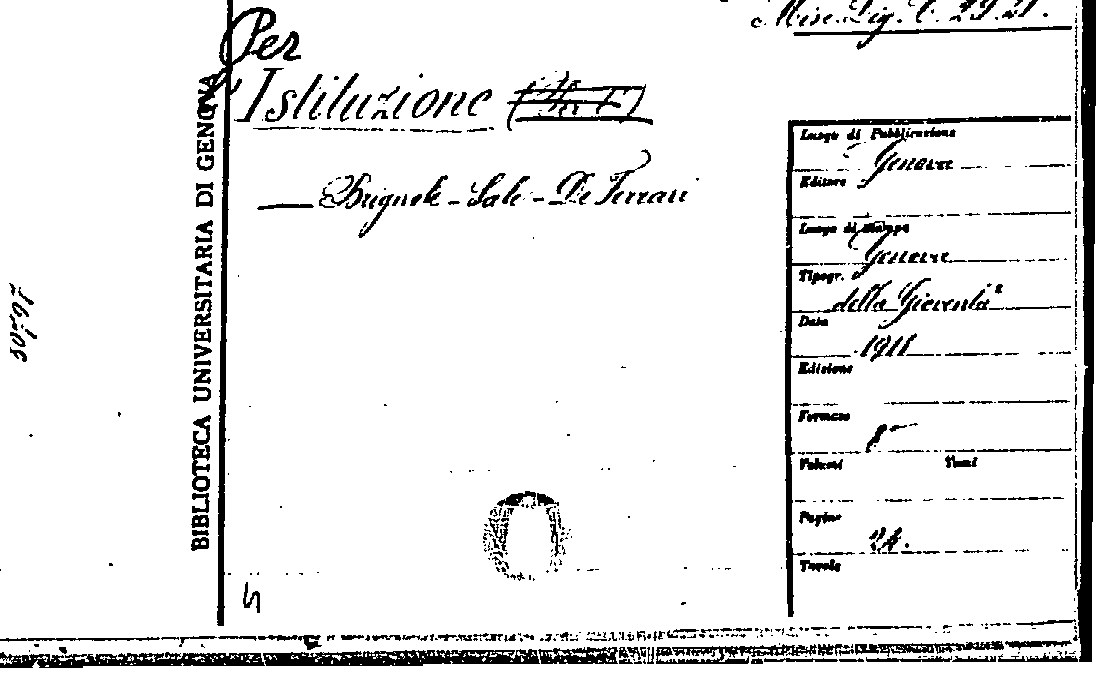 Misc. Lig. C. 29.21.
Per
l'Istituzione
Brignole-Sale-De Ferrari
BIBLIOTECA UNIVERSITARIA DI GENOVA
Luogo di Pubblicazione
Genova
Editore
Luogo di stampa
Genova
Tipogr.
della Gioventù
Data
1911
Edizione
Formato
8
Volumi Tomi
Pagine
24.
Tavole